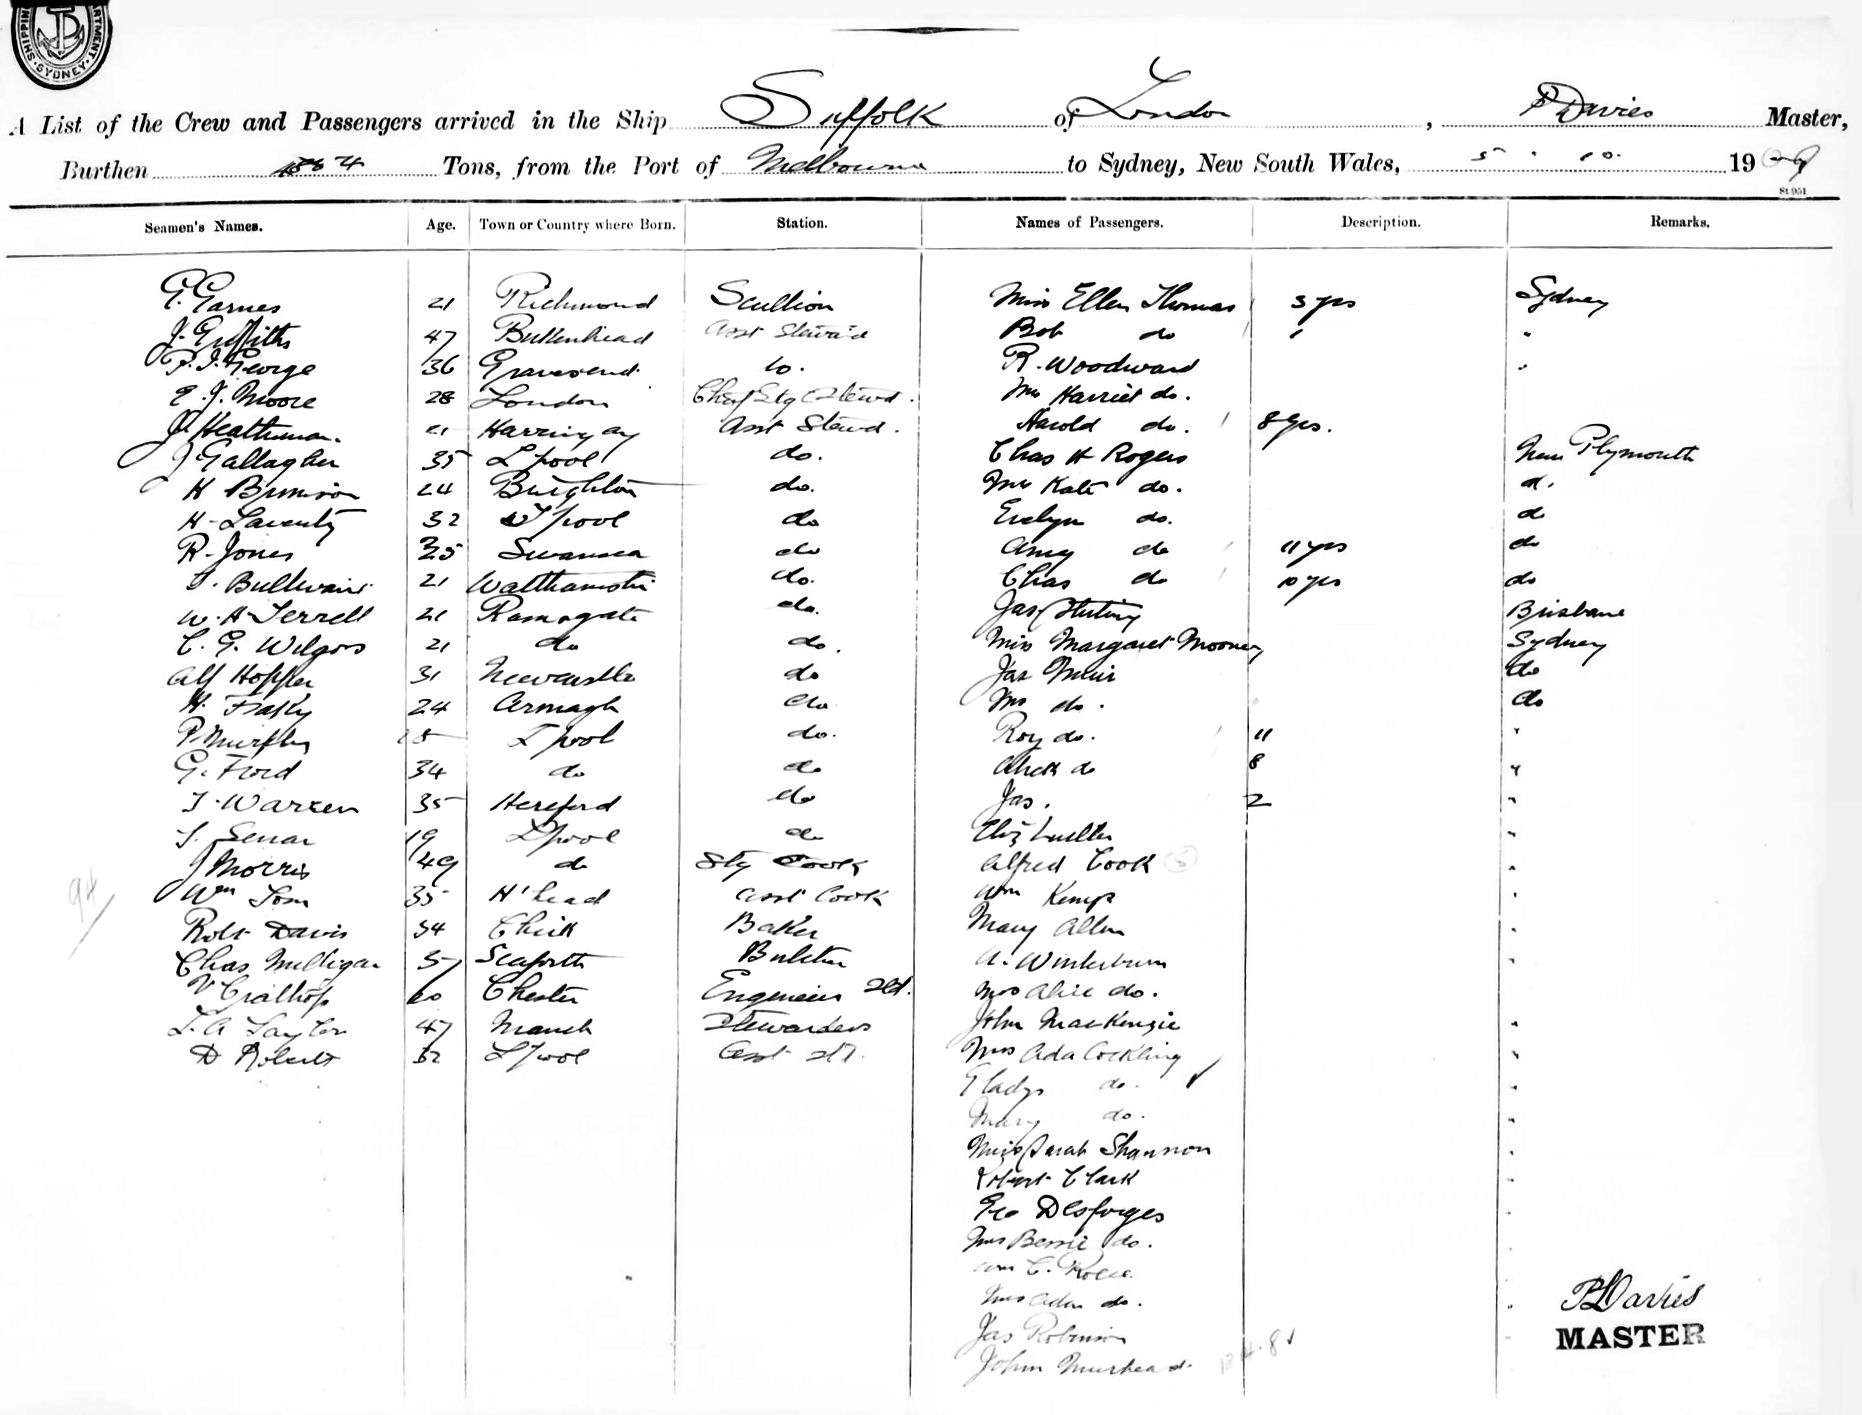 SHIPPING DEPARTMENT SYDNEY
A List of the Crew and Passengers arrived in the Ship Suffolk of London, P Davies Master,
Burthen Tons, from the Port of Melbourne to Sydney, New South Wales, 5 . 10. 1909
St.951
Seamen's Names. Age. Town or Country where Born. Station. Names of Passengers. Description. Remarks.
G. Garnes 21 Richmond Scullion Miss Ellen Thomas 3 yrs Sydney
J. Griffiths 47 Birkenhead Asst Steward Bob do " "
P. J. George 36 Gravesend do. R. Woodward "
E. J. Moore 28 London Chief Stg Steward. Mrs Harriet do.
J Heathman. 21 Harringay Asst Steward. Harold do. 8 yrs.
J Gallagher 35 L'pool do. Chas H Rogers New Plymouth
H 24 Brighton do. Mrs Kate do. do.
H. Laverty 32 L'pool do Evelyn do. do
R. Jones 25 Swansea do Amy do 11 yrs do
21 Walthamstow do. Chas do 10 yrs do
W. H Terrell 21 Ramsgate do. Jas Brisbane
C. G. 21 do do. Miss Margaret Mooney Sydney
Alf 31 Newcastle do Jas Muir do
H. 24 Armagh do Mrs do. do
P Murphy L'pool do. Roy do. 11 "
G. Ford 34 do do Alick do 8 "
J. Warren 35 Hereford do Jas. 2 "
19 L'pool do "
J Morris 49 do Stg Cook Alfred Cook "
Wm 35 B'head Asst Cook Wm Kemp "
Robt Davis 34 Baker Mary Allen "
Chas Milligan Seaforth Butcher A. Winterburn "
Chester Engineers Std. Mrs Alice do.
L. A Taylor 47 Manch Stewardess John MacKenzie "
D Roberts 32 L'pool Asst Std. Mrs Ada Cockling "
Gladys do. "
Mary do. "
Miss Sarah Shannon "
Robert Clark "
Geo Desforges "
Mrs Bessie do. "
Wm C.
Mrs Ada do. "
Jas Robinson
John Muirhead.
94
P Davies
MASTER